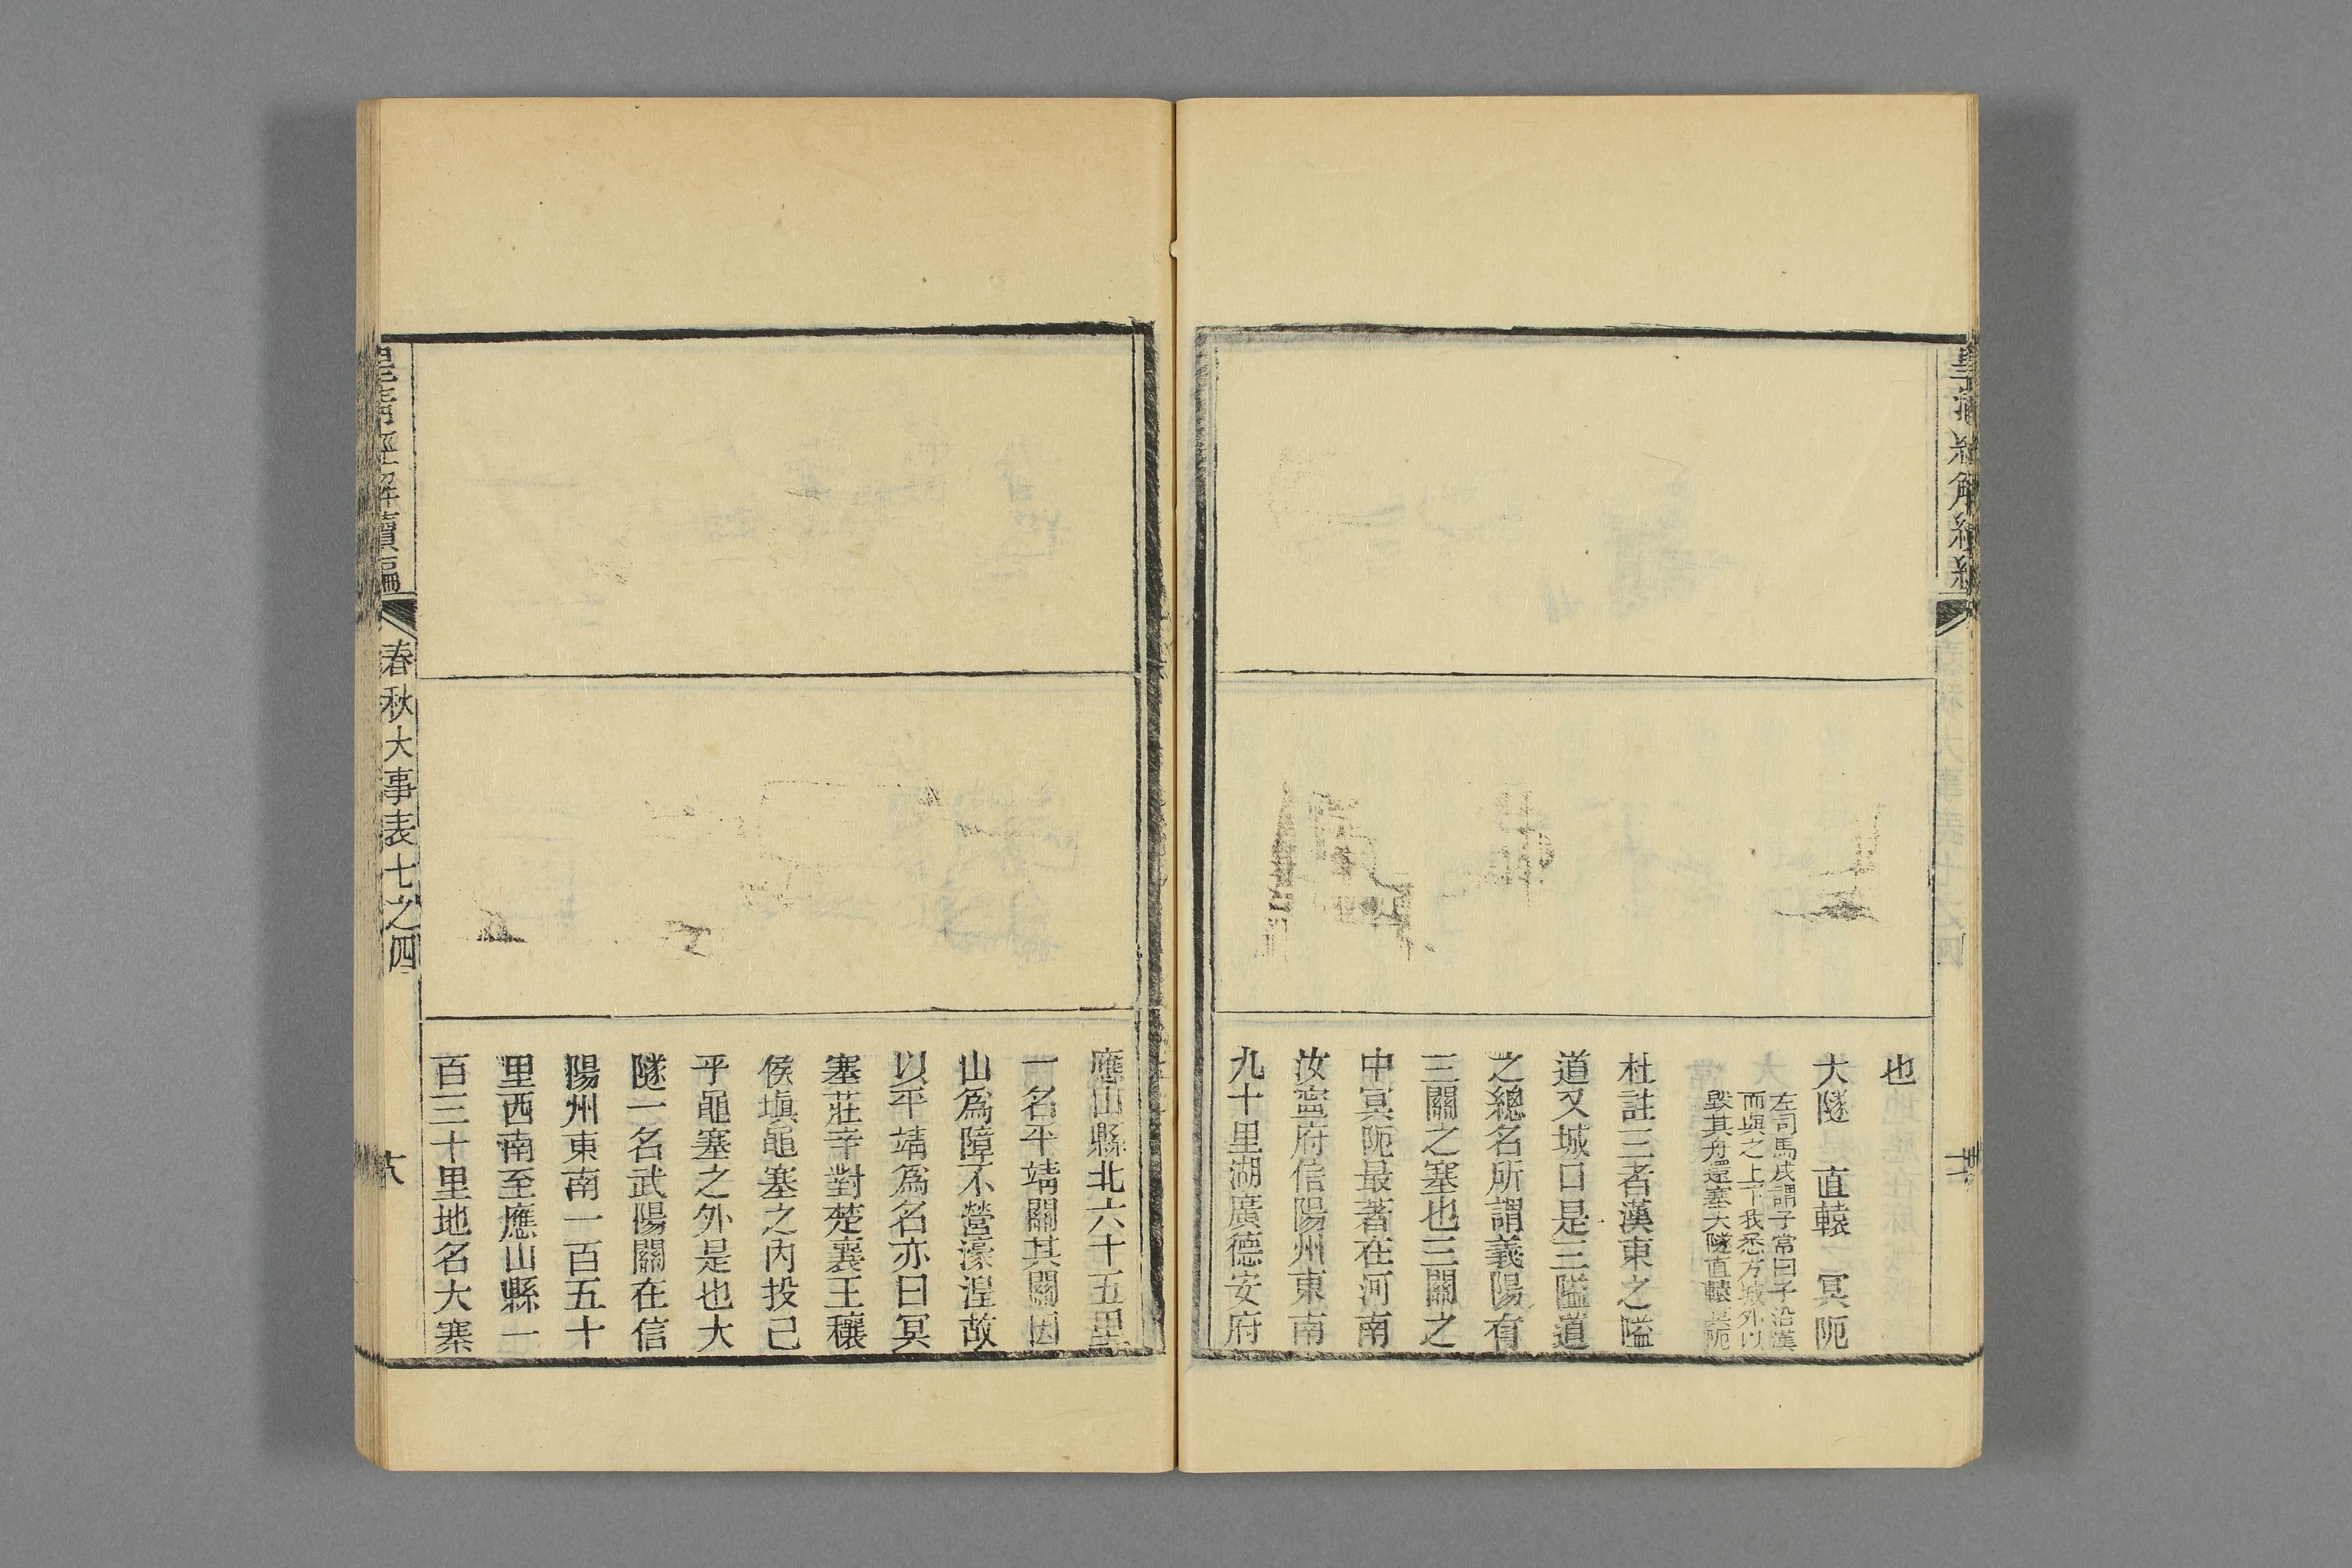 也
大隧　直轅　冥阨
左司馬戌謂子常曰子沿漢
而與之上下我悉方城外以
毀其舟還塞大隧直轅冥阨
杜註三者漢東之隘
道又城口是三隘道
之總名所謂義陽有
三關之塞也三關之
中冥阨最著在河南
汝寧府信陽州東南
九十里湖廣德安府
應山縣北六十五里
一名平靖關其關因
山為障不營濠湟故
以平靖為名亦曰冥
塞莊辛對楚襄王穰
侯填黽塞之內投己
乎黽塞之外是也大
隧一名武陽關在信
陽州東南一百五十
里西南至應山縣一
百三十里地名大寨
皇清經解續編
春秋大事表七之四